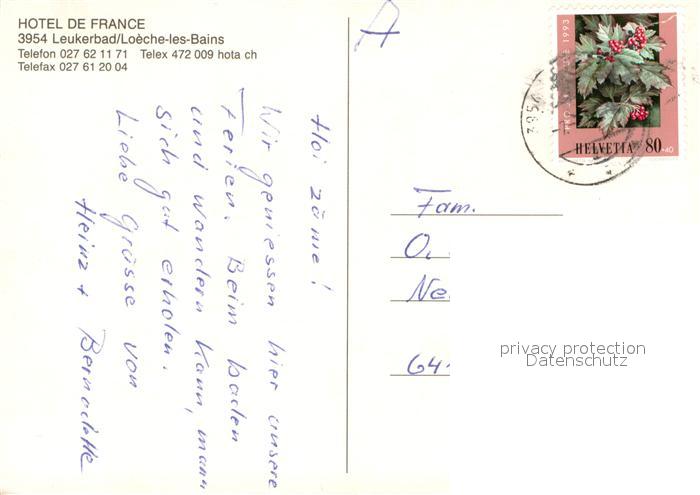 HOTEL DE FRANCE
3954 Leukerbad/Loèche-les-Bains
Telefon 027 62 11 71 Telex 472 009 hota ch
Telefax 027 61 20 04
Hoi zäme!
Wir geniessen hier unsere
Ferien. Beim baden
und wandern kann, mann
sich gut erholen.
Liebe Grüsse von
Heinz + Bernadette
A
PRO JUVENTUTE 1993
HELVETIA 80+40
3954
Fam.
O.
Ne
64
privacy protection
Datenschutz